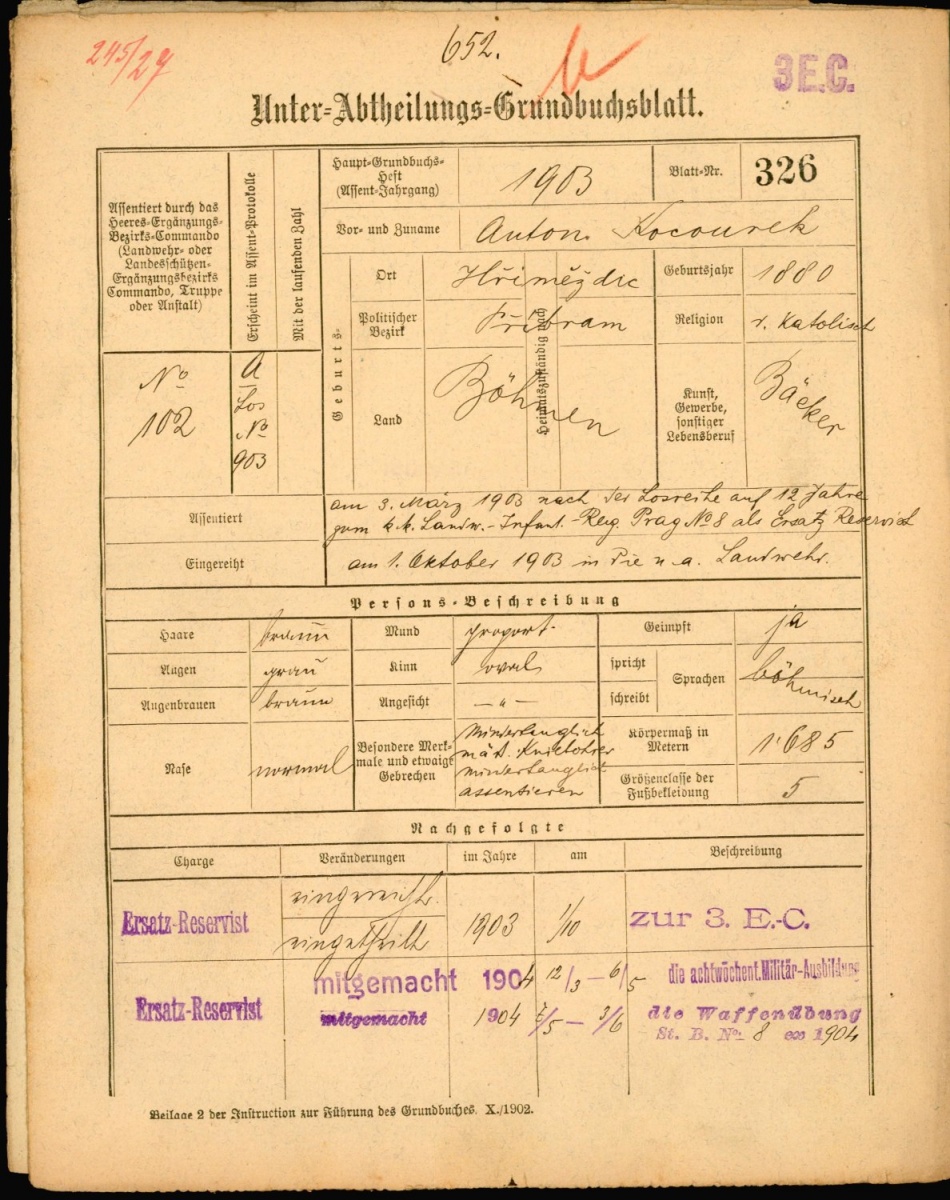 245/27
652.
3 E.C.
Unter-Abtheilungs-Grundbuchsblatt.
Assentiert durch das
Heeres-Ergänzungs-
Bezirks-Commando
(Landwehr- oder
Landesschützen-
Ergänzungsbezirks
Commando, Truppe
oder Anstalt)
Erscheint im Assent-Protokolle
Mit der laufenden Zahl
No
102
A
Los
No
903
Haupt-Grundbuchs-
Heft
(Assent-Jahrgang)
1903
Blatt-Nr.
326
Vor- und Zuname
Anton Kocourek
Geburts-
Ort
Hřiměždic
Politischer
Bezirk
Přibram
Land
Böhmen
Heimatszuständig nach
Geburtsjahr
1880
Religion
r. Katolisch
Kunst,
Gewerbe,
sonstiger
Lebensberuf
Bäcker
Assentiert
am 3. März 1903 nach der Losreihe auf 12 Jahre
zum k.k. Landw.-Infant.-Reg. Prag No 8 als Ersatz Reservist
Eingereiht
am 1. Oktober 1903 in die n. a. Landwehr.
Persons-Beschreibung
Haare
braun
Augen
grau
Augenbrauen
braun
Nase
normal
Mund
proport.
Kinn
oval
Angesicht
- " -
Besondere Merk-
male und etwaige
Gebrechen
Mindertauglich
mindertauglich
assentieren
Geimpft
ja
spricht
schreibt
Sprachen
böhmisch
Körpermaß in
Metern
1·685
Größenclasse der
Fußbekleidung
5
Nachgefolgte
Charge
Veränderungen
im Jahre
am
Beschreibung
Ersatz-Reservist
eingereiht
eingetheilt
1903
1/10
zur 3. E.-C.
mitgemacht 1904 12/3 - 6/5 die achtwöchent. Militär-Ausbildung
Ersatz-Reservist mitgemacht 1904 7/5 - 3/6 die Waffenübung
St. B. No: 8 ex 1904
Beilage 2 der Instruction zur Führung des Grundbuches. X./1902.